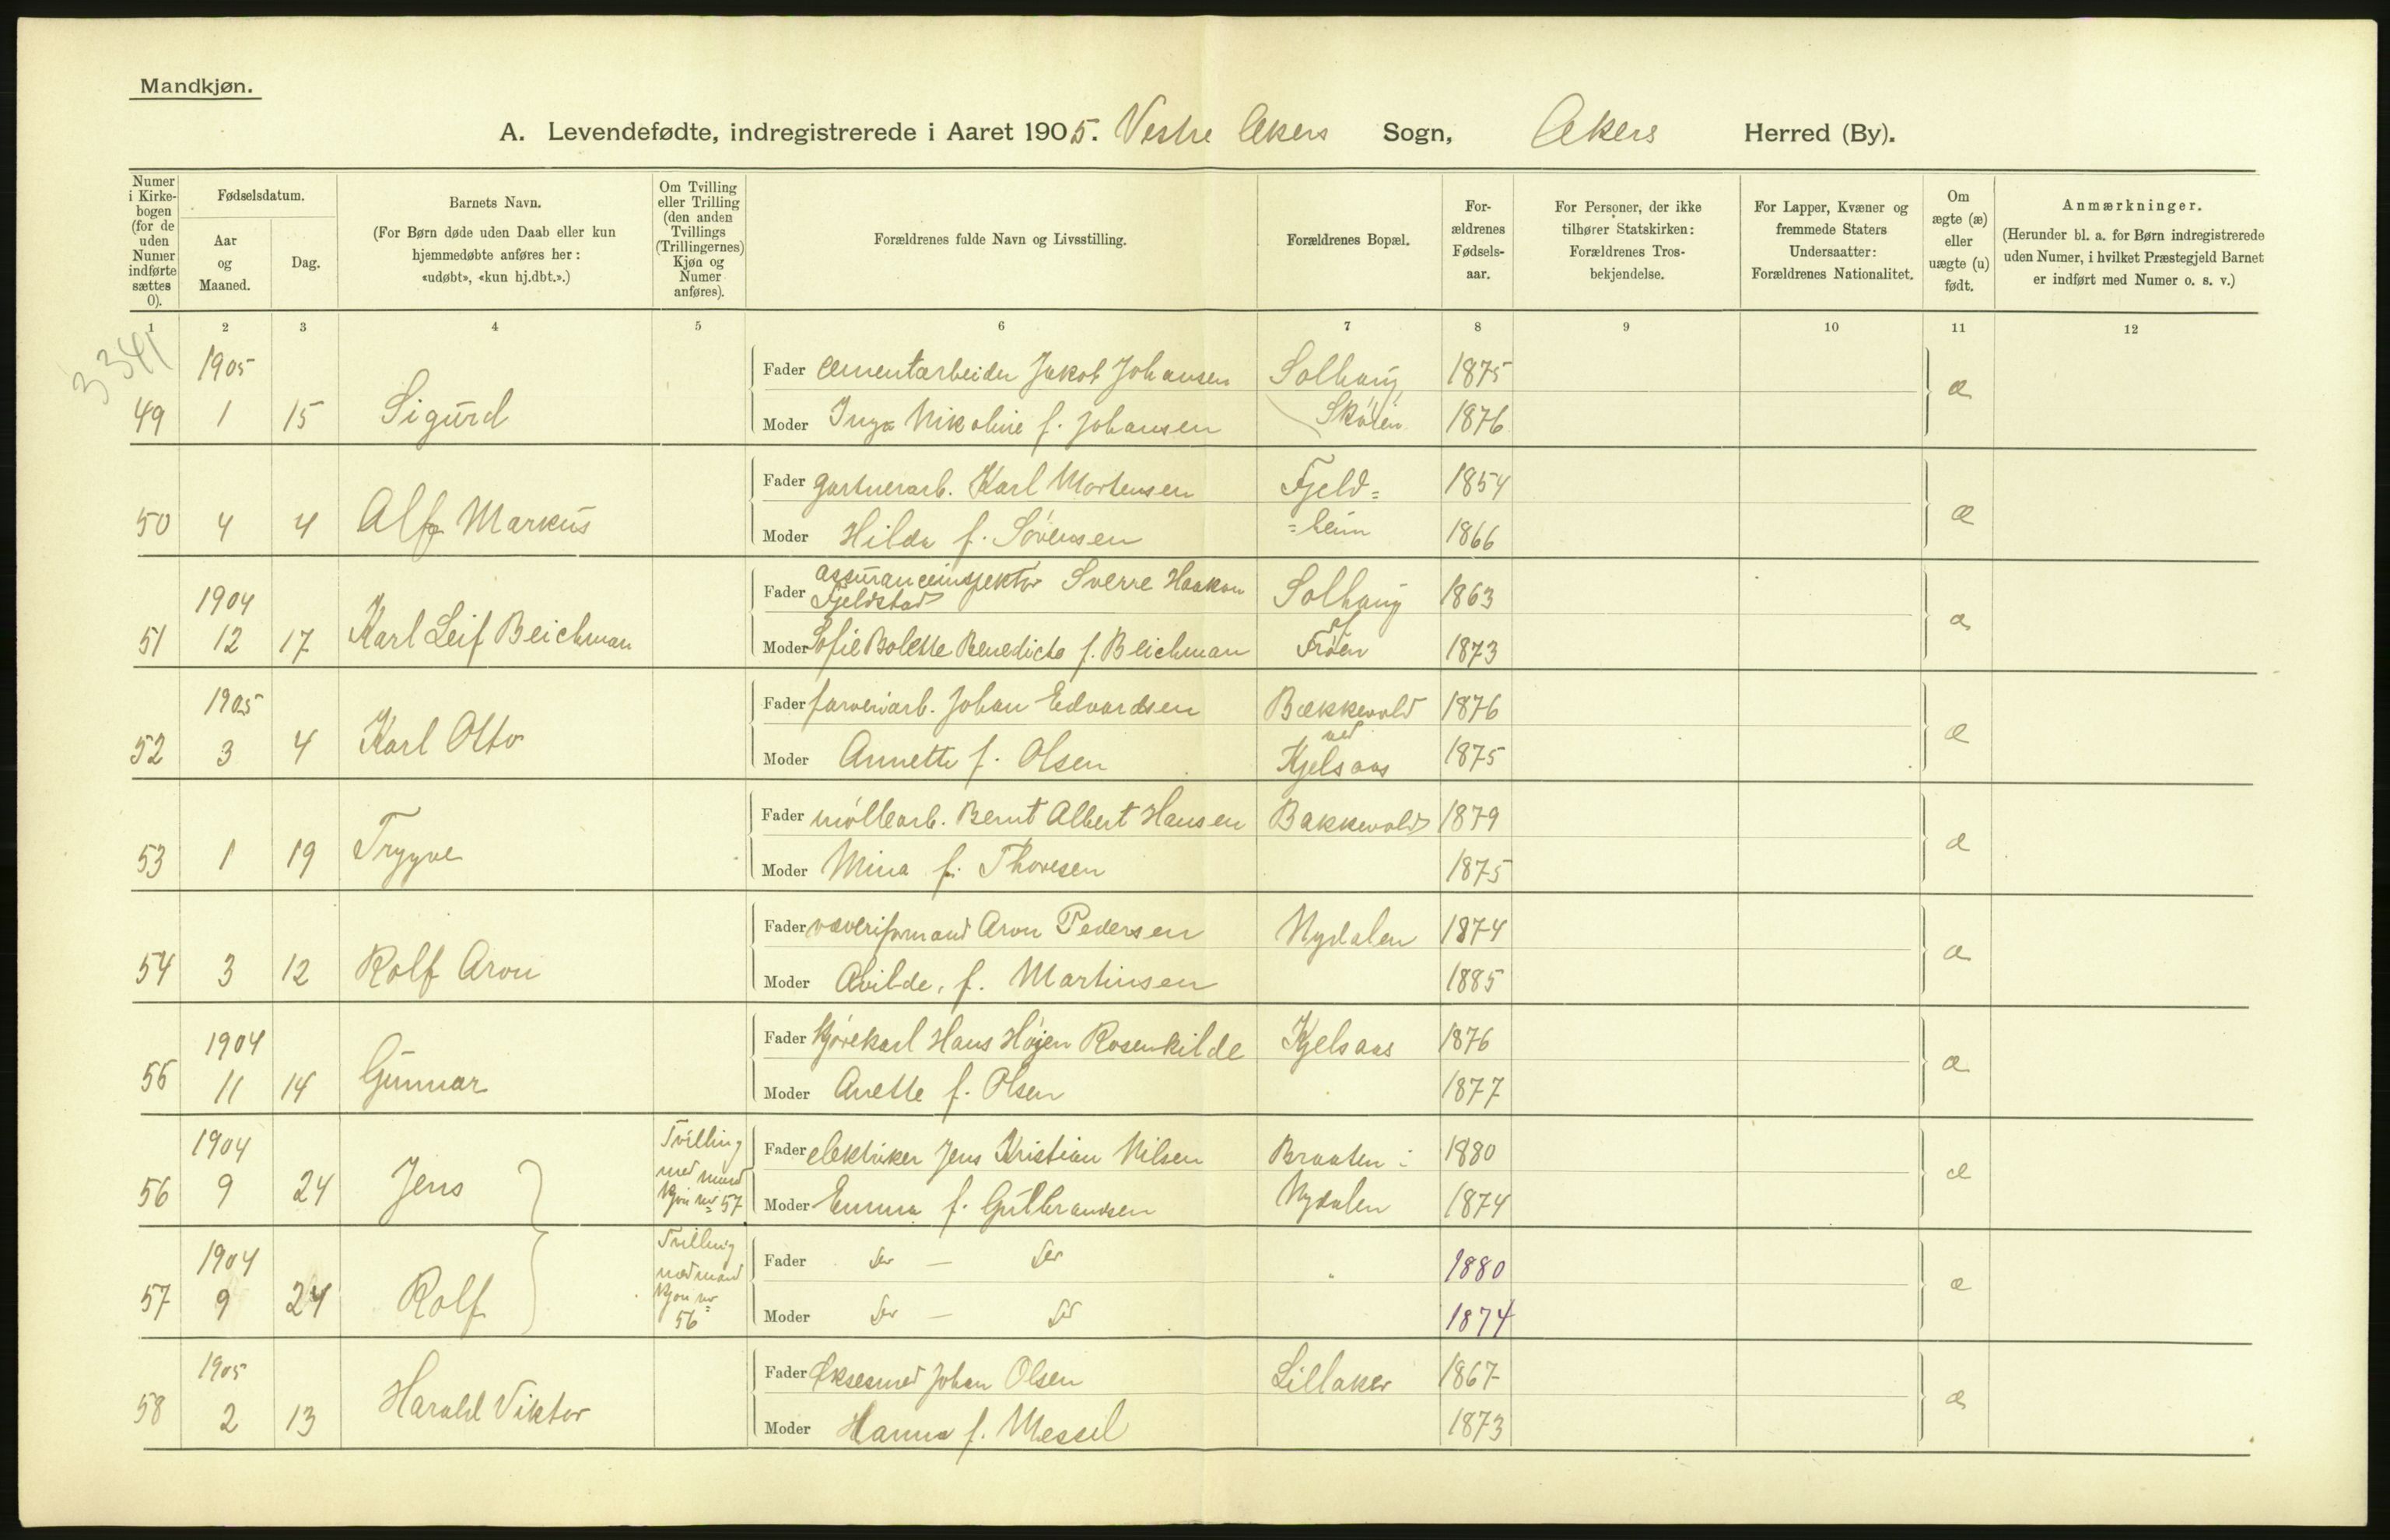 Mandkjøn.
A. Levendefødte, indregistrerede i Aaret 1905. Vestre Akers Sogn, Akers Herred (By).
Numer i Kirke-bogen (for de uden Numer indførte sættes 0).
Fødselsdatum.
Aar og Maaned.
Dag.
Barnets Navn.
(For Børn døde uden Daab eller kun hjemmedøbte anføres her: «udøbt», «kun hj.dbt.».)
Om Tvilling eller Trilling (den anden Tvillings (Trillingernes) Kjøn og Numer anføres).
Forældrenes fulde Navn og Livsstilling.
Forældrenes Bopæl.
For-ældrenes Fødsels-aar.
For Personer, der ikke tilhører Statskirken: Forældrenes Tros-bekjendelse.
For Lapper, Kvæner og fremmede Staters Undersaatter: Forældrenes Nationalitet.
Om ægte (æ) eller uægte (u) født.
Anmærkninger.
(Herunder bl. a. for Børn indregistrerede uden Numer, i hvilket Præstegjeld Barnet er indført med Numer o. s. v.)
1 2 3 4 5 6 7 8 9 10 11 12
3341
1905 Fader cementarbeider Jakob Johansen Solhaug 1875 æ
49 1 15 Sigurd Moder Inga Nikoline f. Johansen Skøien 1876
Fader gartnerarb. Karl Mortensen Fjeld= 1854 æ
50 4 4 Alf Markus Moder Hilda f. Sørensen =heim 1866
1904 Fader assuranceinspektør Sverre Haakon Fjeldstad Solhaug 1863 æ
51 12 17 Karl Leif Beichman Moder Sofie Bolette Benedicte f. Beichman Frøen 1873
1905 Fader farveriarb. Johan Edvardsen Bækkevold 1876 æ
52 3 4 Karl Otto Moder Annette f. Olsen ved Kjelsaas 1875
Fader møllearb. Bernt Albert Hansen Bakkevold 1879 æ
53 1 19 Trygve Moder Mina f. Thoresen 1875
Fader væveriformand Aron Pedersen Nydalen 1874 æ
54 3 12 Rolf Aron Moder Alvilde, f. Martinsen 1885
1904 Fader kjørekarl Hans Højen Rosenkilde Kjelsaas 1876 æ
55 11 14 Gunnar Moder Anette f. Olsen 1877
1904 Tvilling med mand kjøn nr 57 Fader elektriker Jens Kristian Nilsen Braaten i 1880 æ
56 9 24 Jens Moder Emma f. Gulbrandsen Nydalen 1874
1904 Tvilling med mand kjøn nr 56 Fader do — do " 1880 æ
57 9 24 Rolf Moder do — do 1874
1905 Fader Øksesmed Johan Olsen Lillaker 1867 æ
58 2 13 Harald Viktor Moder Hanna f. Messel 1873